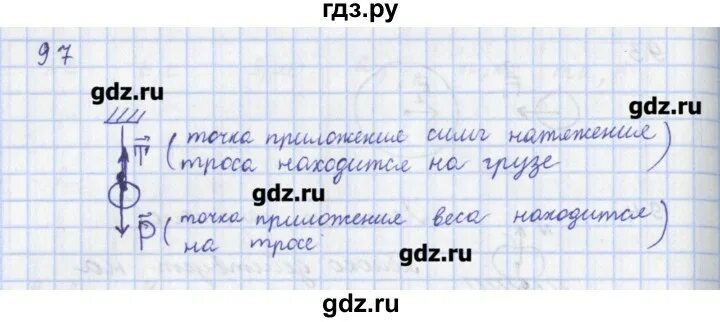 гдз.ру
97
gdz.ru
gdz.ru
T (точка приложения силы натяжения
троса находится на грузе)
gdz.ru
P (точка приложения веса находится
на тросе)
gdz.ru
gdz.ru